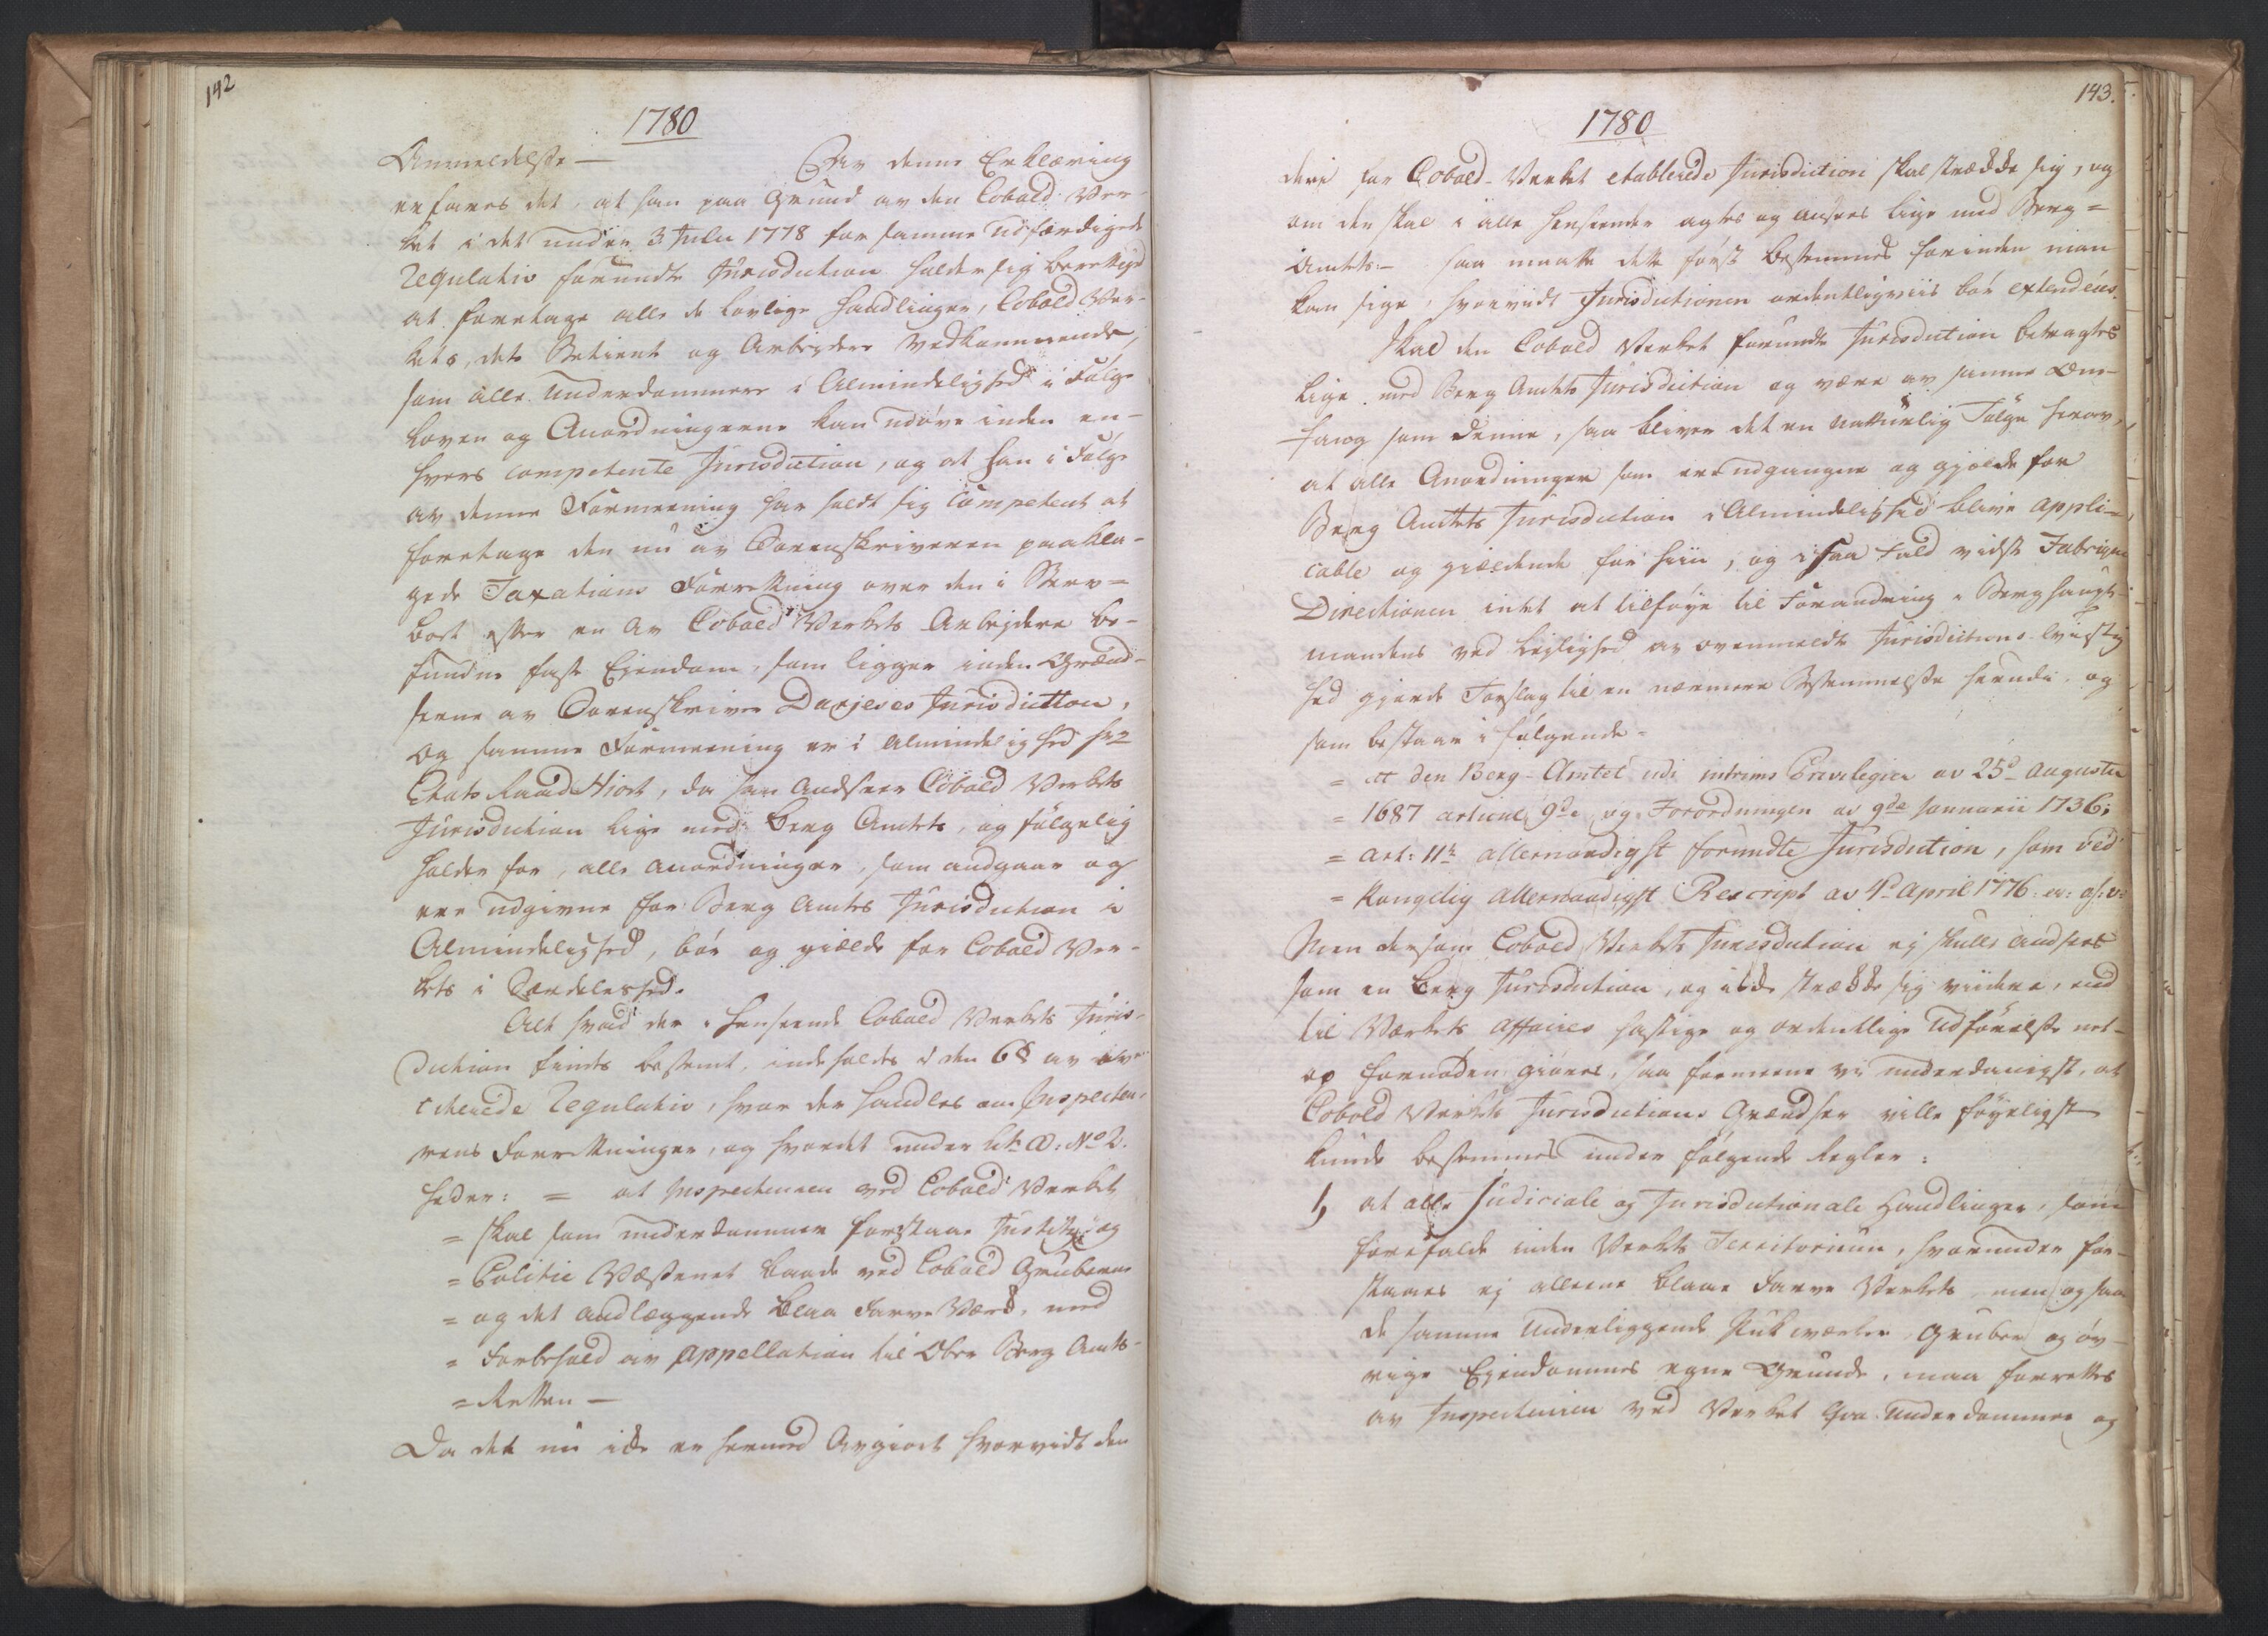 142
1780
Anmeldelsse — Av denne Erklæring
erfares det, at han paa Grund av den Cobold Ver-
ket i det under 3 Julii 1778 for samme udfærdigede
Regulativ forundte Jurisdiction holder sig berettiget
at foretage alle de lovlige Handlinger, Cobold Ver-
kets, dets Betiente og Arbejdere vedkommende,
som alle Underdommere i Almindelighed i Følge
Loven og Anordningerne kan udøve inden en-
hvers competente Jurisdiction, og at han i Følge
av denne Formeening har holdt sig Competent at
foretage den nu av Sorenskriveren paakla-
gede Taxations Forretning over den i Sterv-
boet efter en av Cobold Verkets Arbejdere be-
fundne faste Ejendom, som ligger inden Grænd-
serne av Sorenskriver Darjeses Jurisdiction,
og samme Formeening er i Almindelighed Hr
Etats Raad Hiort, da han andseer Cobold Verkets
Jurisdiction lige med Berg Amtets, og følgelig
holder for, alle Anordninger, som andgaar og
ere udgivne for Berg Amtets Jurisdiction i
Almindelighed, bør og gielde for Cobold Ver-
kets i Særdeleshed.
Alt hvad der i Henseende Cobold Verkets Juris-
diction findes bestemt, indeholdes i den 6§ av ov
citerede Regulativ, hvor der handles om Inspecteu-
rens Forretninger, og hvor det under Litr. A: No 2.
heder: = at Inspecteuren ved Cobold Verket
= skal som Underdommer forestaae Justitz og
= Politie Væsenet baade ved Cobold Gruberne
= og det andlæggende Blaa Farve Værk, med
= Forbehold av Appellation til Ober Berg Amts-
= Retten —
Da det nu ikke er hermed avgiort hvorvidt den
143.
1780
der for Cobold-Verket etablerede Jurisdiction skal strække sig, og
om den skal i alle Henseender agtes og ansees lige med Berg=
Amtets: — saa maatte dette først bestemmes forinden man
kan sige, hvorvidt Jurisdictionen ordentligviis bør extenderes.
Skal den Cobold Verket forundte Jurisdiction betragtes
lige med Berg Amtets Jurisdiction og være av samme Om-
fang som denne, saa bliver det en naturlig Følge herav,
at alle Anordninger som ere udgangne og gjælde for
Berg Amtets Jurisdiction i Almindelighed blive appli-
cable og giældende for hiin, og i saa Fald vidste Fabrique
Directionen intet at tilføye til Forandring i Berghaupt-
mandens ved Lejlighed av ovenmeldte Jurisdictions Tvistig
hed giorde Forslag til en nærmere Bestemmelsse herudi, og
som bestaar i følgende =
= at den Berg-Amtet udi intrims Privilegier av 25d Augusti
= 1687 articul 9de og Forordningen av 9de Januarii 1736:
= art: 11te allernaadigst forundte Jurisdiction, som ved
= Kongelig Allernaadigst Rescript av 4d April 1776
Men dersom Cobold Verkets Jurisdiction ej skulle andsees
som en Berg Jurisdiction, og ikke strække sig viidere, end
til Værkets affaires hastige og ordentlige Udførelsse net-
op fornøden giøres, saa formeene vi underdanigst, at
Cobold Verkets Jurisdictions Grændser ville føyeligst
kunde bestemmes under følgende Regler:
1, at alle Judiciale og Jurisdictionale Handlinger, som
forefalde inden Verkets Territorium, hvorunder for-
staaes ej alleene Blaae Farve Verkets, men ogsaa
de samme underliggende Pukværker, Gruber og øv-
rige Ejendommes egne Grunde, maa forrettes
av Inspecteuren ved Verket qva Underdommer og